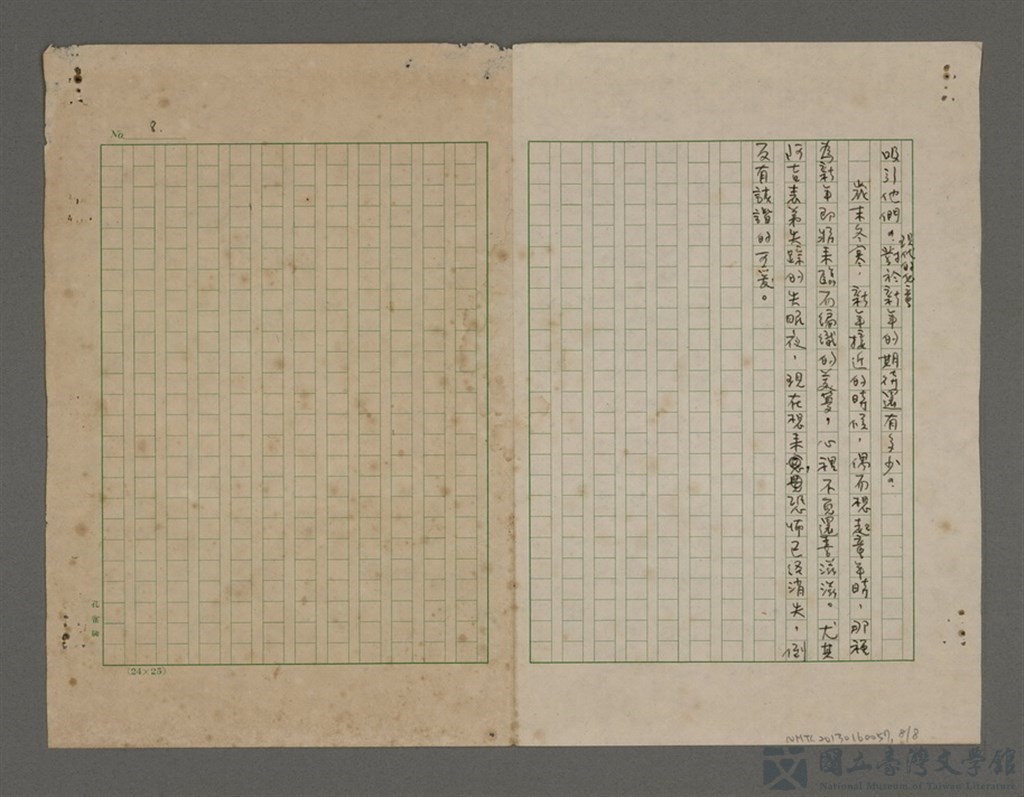 吸引他們。現代的兒童對於新年的期待還有多少。
歲末冬寒,新年接近的時候,偶而想起童年時,那種
為新年即將來臨而編織的美夢,心裡不免還喜滋滋。尤其
阿吉表弟失踪的失眠夜,現在想來,恐怖已經消失,倒
反有詼諧的可愛。
No. 8.
(24×25)
NMTL20130160057, 8/8
國立臺灣文學館
National Museum of Taiwan Literature